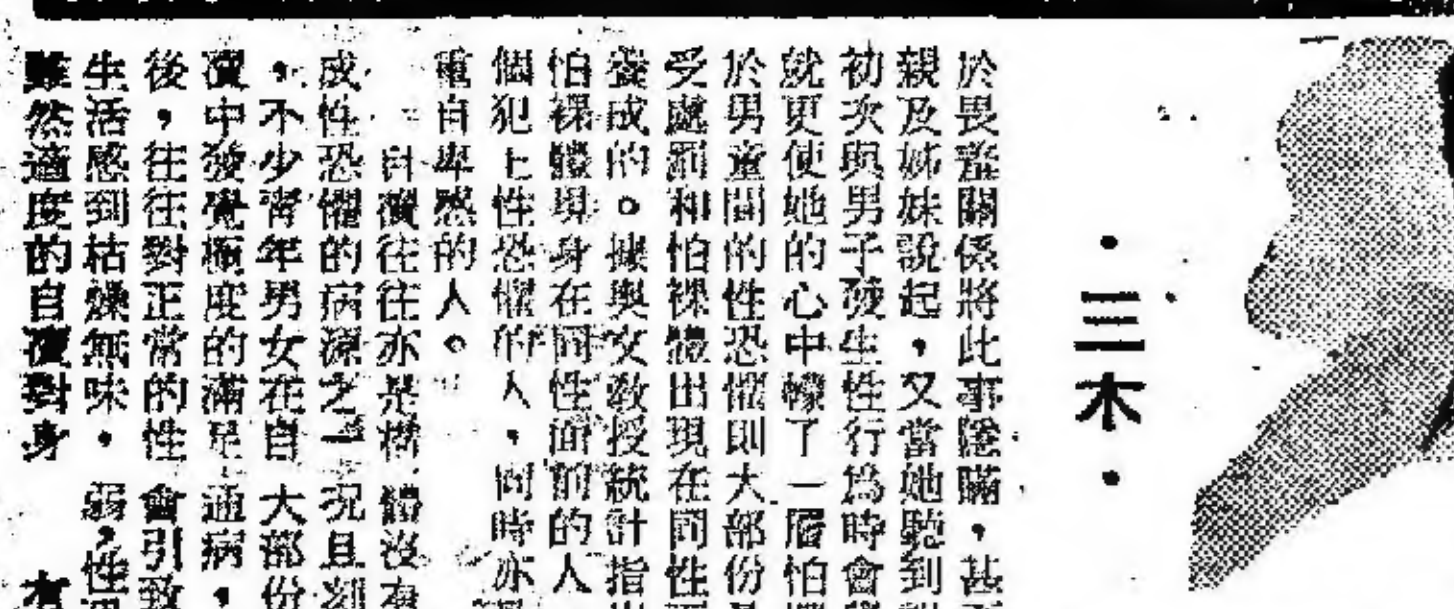 ・三木・
於畏羞關係將此事隱瞞，甚
親及姊妹說起，又當她聽到
初次與男子發生性行爲時會
就更使她的心中幪了一層怕
於男童間的性恐懼則大部份
受處罰和怕裸體出現在同性
養成的。據與文教授統計指
怕裸體現身在同性面前的人
個犯上性恐懼的人，同時亦
重自卑感的人。
自瀆往往亦是構
成性恐懼的病源之一
，不少靑年男女在自
瀆中發覺極度的滿足
後，往往對正常的性
生活感到枯燥無味。
雖然適度的自瀆對身
體沒有
況且刻
大部份
通病，
會引致
弱，性
有